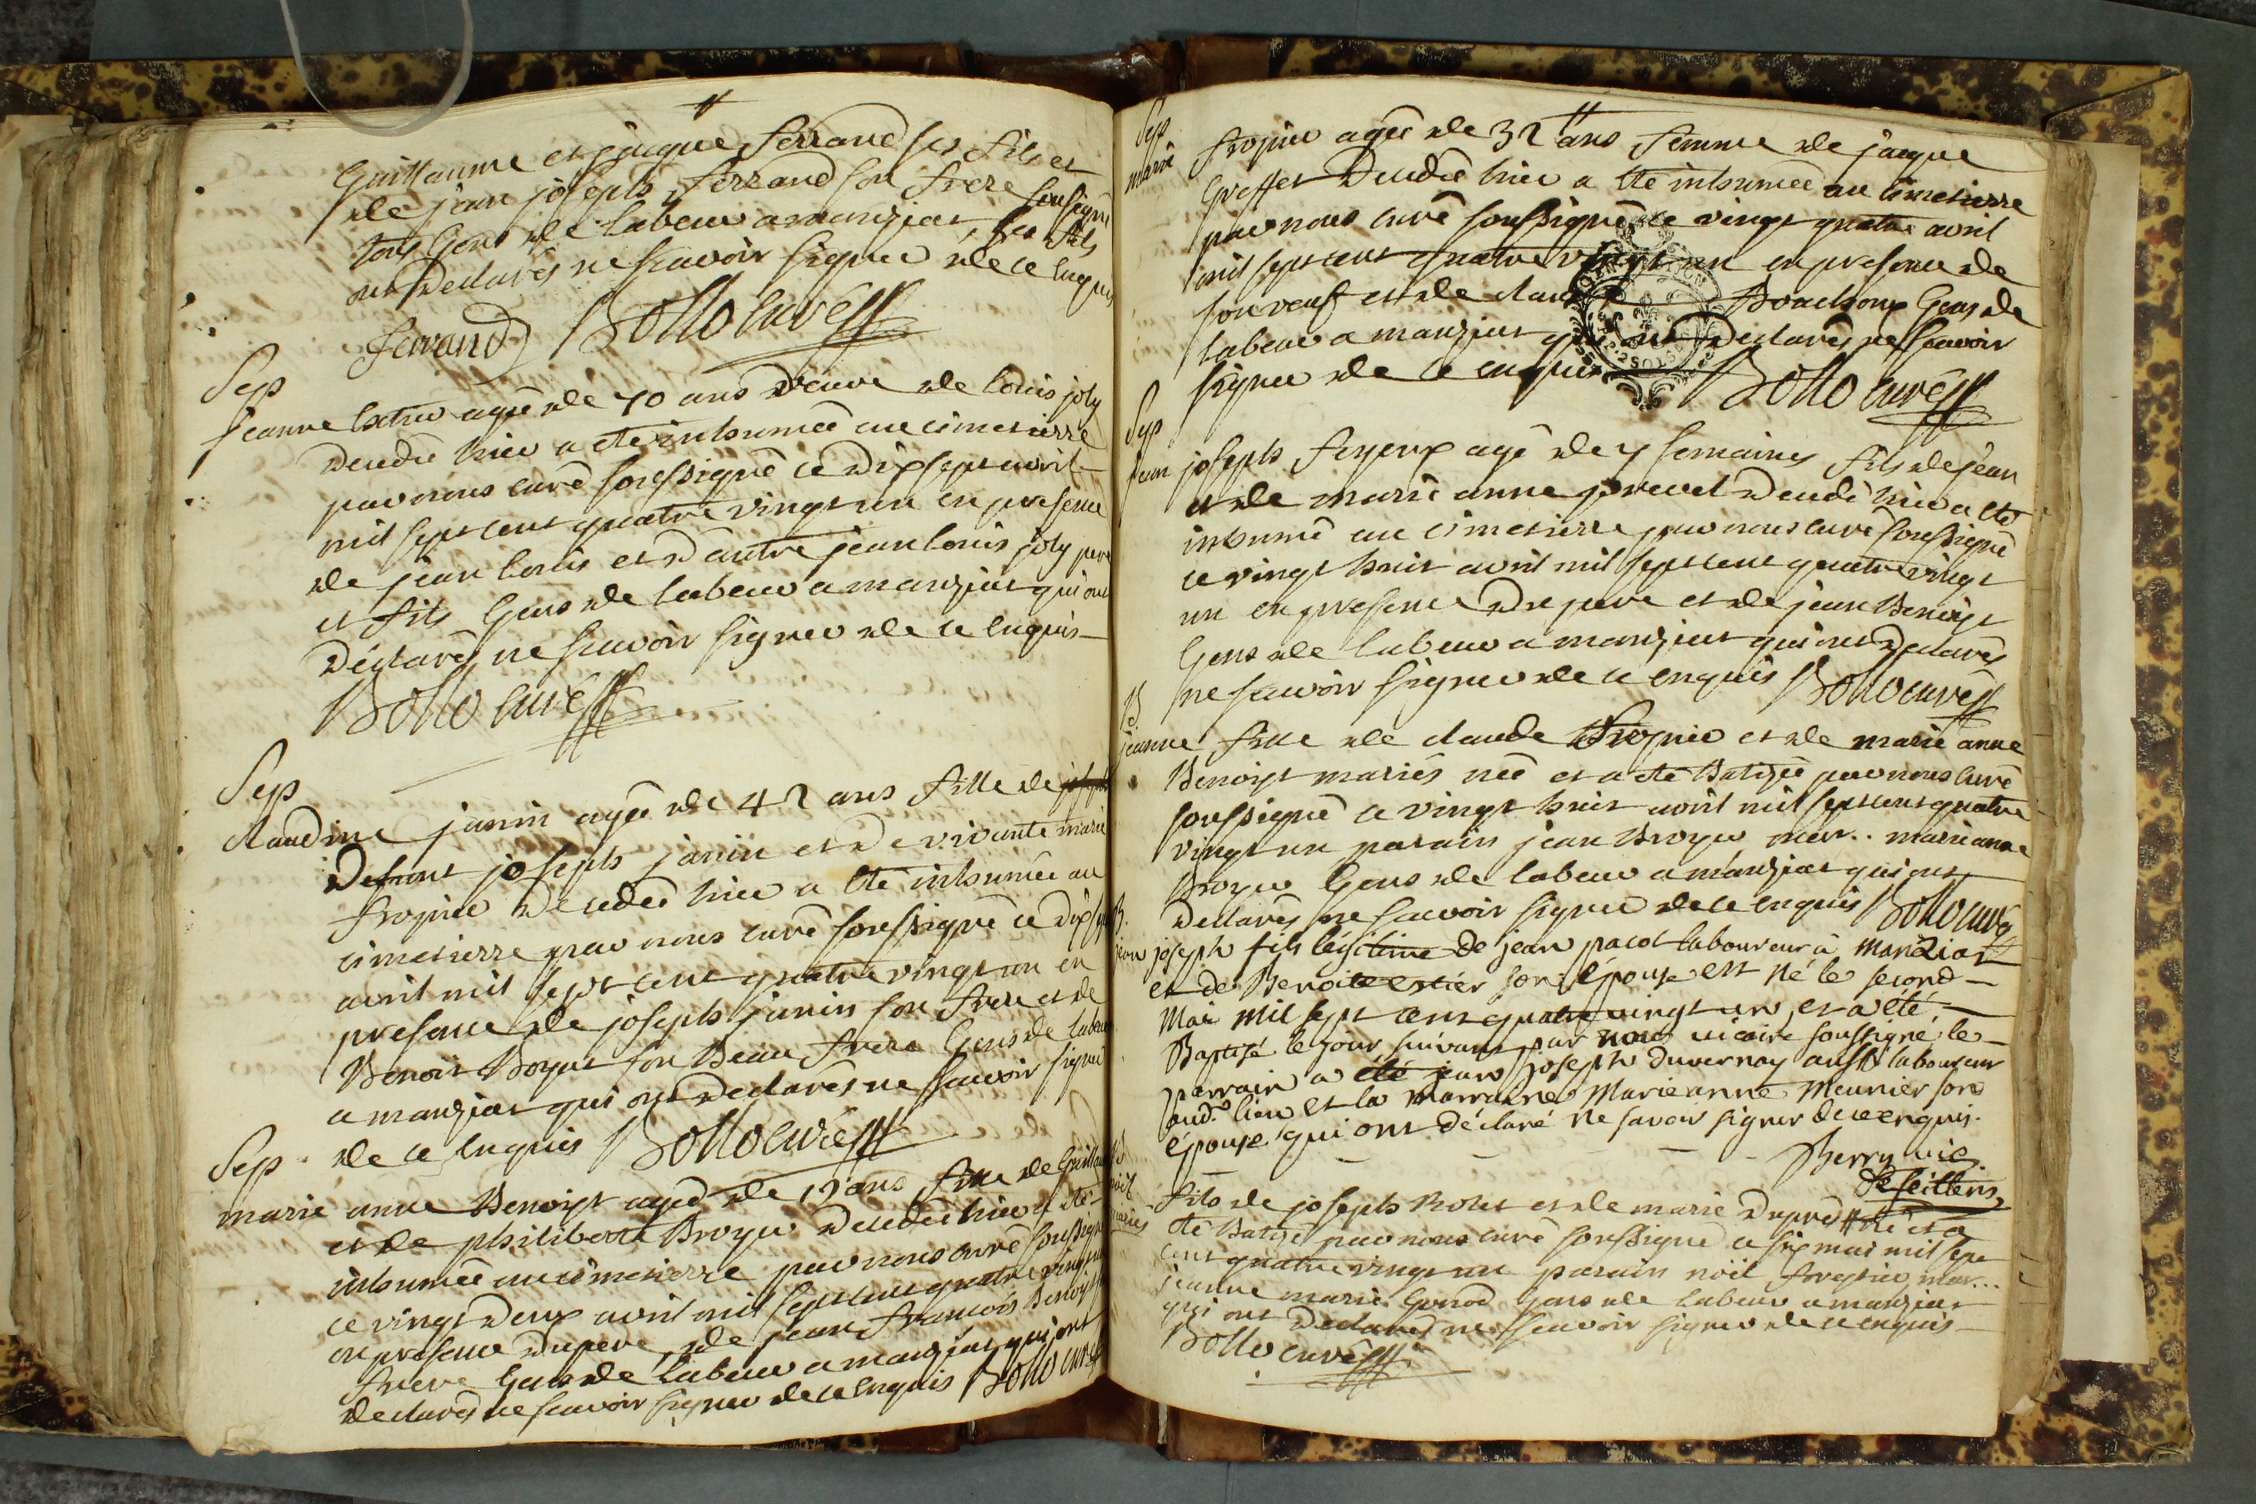 Guillaume et jaque ferrand ses fils et
de jean joseph ferrand son frere soussigné
tous gens de labeur a manziat, les fils
ont declarés ne scavoir signer de ce enquis
ferrand Bollo curé
Sep
jeanne agée de 70 ans veuve de louis joly
decedée hier a eté inhumée au cimetierre
par nous curé soussigné ce dix sept avril
mil sept cent quatre vingt un en presence
de jean louis et d'autre jean louis joly pere
et fils gens de labeur a manziat qui ont
déclarés ne scavoir signer de ce enquis
Bollo curé
Sep
claudine janin agée de 42 ans fille de
defunt joseph janin et de vivante marie
fropier decedée hier a eté inhumée au
cimetierre par nous curé soussigné ce dix sept
avril mil sept cent quatre vingt un en
presence de joseph janin son frere et de
Benoit Boyat son Beau frere gens de labeur
a manziat qui ont declarés ne scavoir signer
Sep de ce enquis Bollo curé
marie anne Benoist agée de ans fille de
et de philiberte Broyer decedée hier a eté
inhumée au cimetierre par nous curé soussigné
ce vingt deux avril mil sept cent quatre vingt un
en presence du pere, de jean francois Benoist
frere gens de labeur a manziat qui ont
declarés ne scavoir signer de ce enquis Bollo curé
Sep
marie fropier agée de 32 ans femme de jacque
greffet decedée hier a eté inhumée au cimetierre
par nous curé soussigné ce vingt quatre avril
mil sept cent quatre vingt un en presence de
son veuf et de claude Bouchoux gens de
labeur a manziat qui ont declarés ne scavoir
signer de ce enquis Bollo curé
Sep
jean joseph feyeux agé de 7 semaines fils de jean
et de marie anne prevel decedé hier a eté
inhumé au cimetierre par nous curé soussigné
ce vingt huit avril mil sept cent quatre vingt
un en presence du pere et de jean Benoist
gens de labeur a manziat qui ont declarés
ne scavoir signer de ce enquis Bollo curé
B.
jeanne fille de claude fropier et de marie anne
Benoist mariés née et a eté Batizée par nous curé
soussigné ce vingt huit avril mil sept cent quatre
vingt un parain jean Broyer mar.. marie anne
Broyer gens de labeur a manziat qui ont
declarés ne scavoir signer de ce enquis Bollo curé
B.
jean joseph fils légitime de jean pacot laboureur à Manziat
et de Benoite son épouse est né le second
Mai mil sept cent quatre vingt un et a été
Baptisé le jour suivant par nous vicaire soussigné le
parrain a été jean joseph duvernay aussi laboureur
aud. lieu et la marraine Marie anne Meunier son
épouse qui ont déclaré ne savoir signer de ce enquis.
Berry vic.
de feillens
fils de joseph et de marie dupré né et a
été Batizé par nous curé soussigné ce six mai mil sept
cent quatre vingt un parain noël mar...
jeanne marie gonod gens de labeur a manziat
qui ont declarés ne scavoir signer de ce enquis
Bollo curé